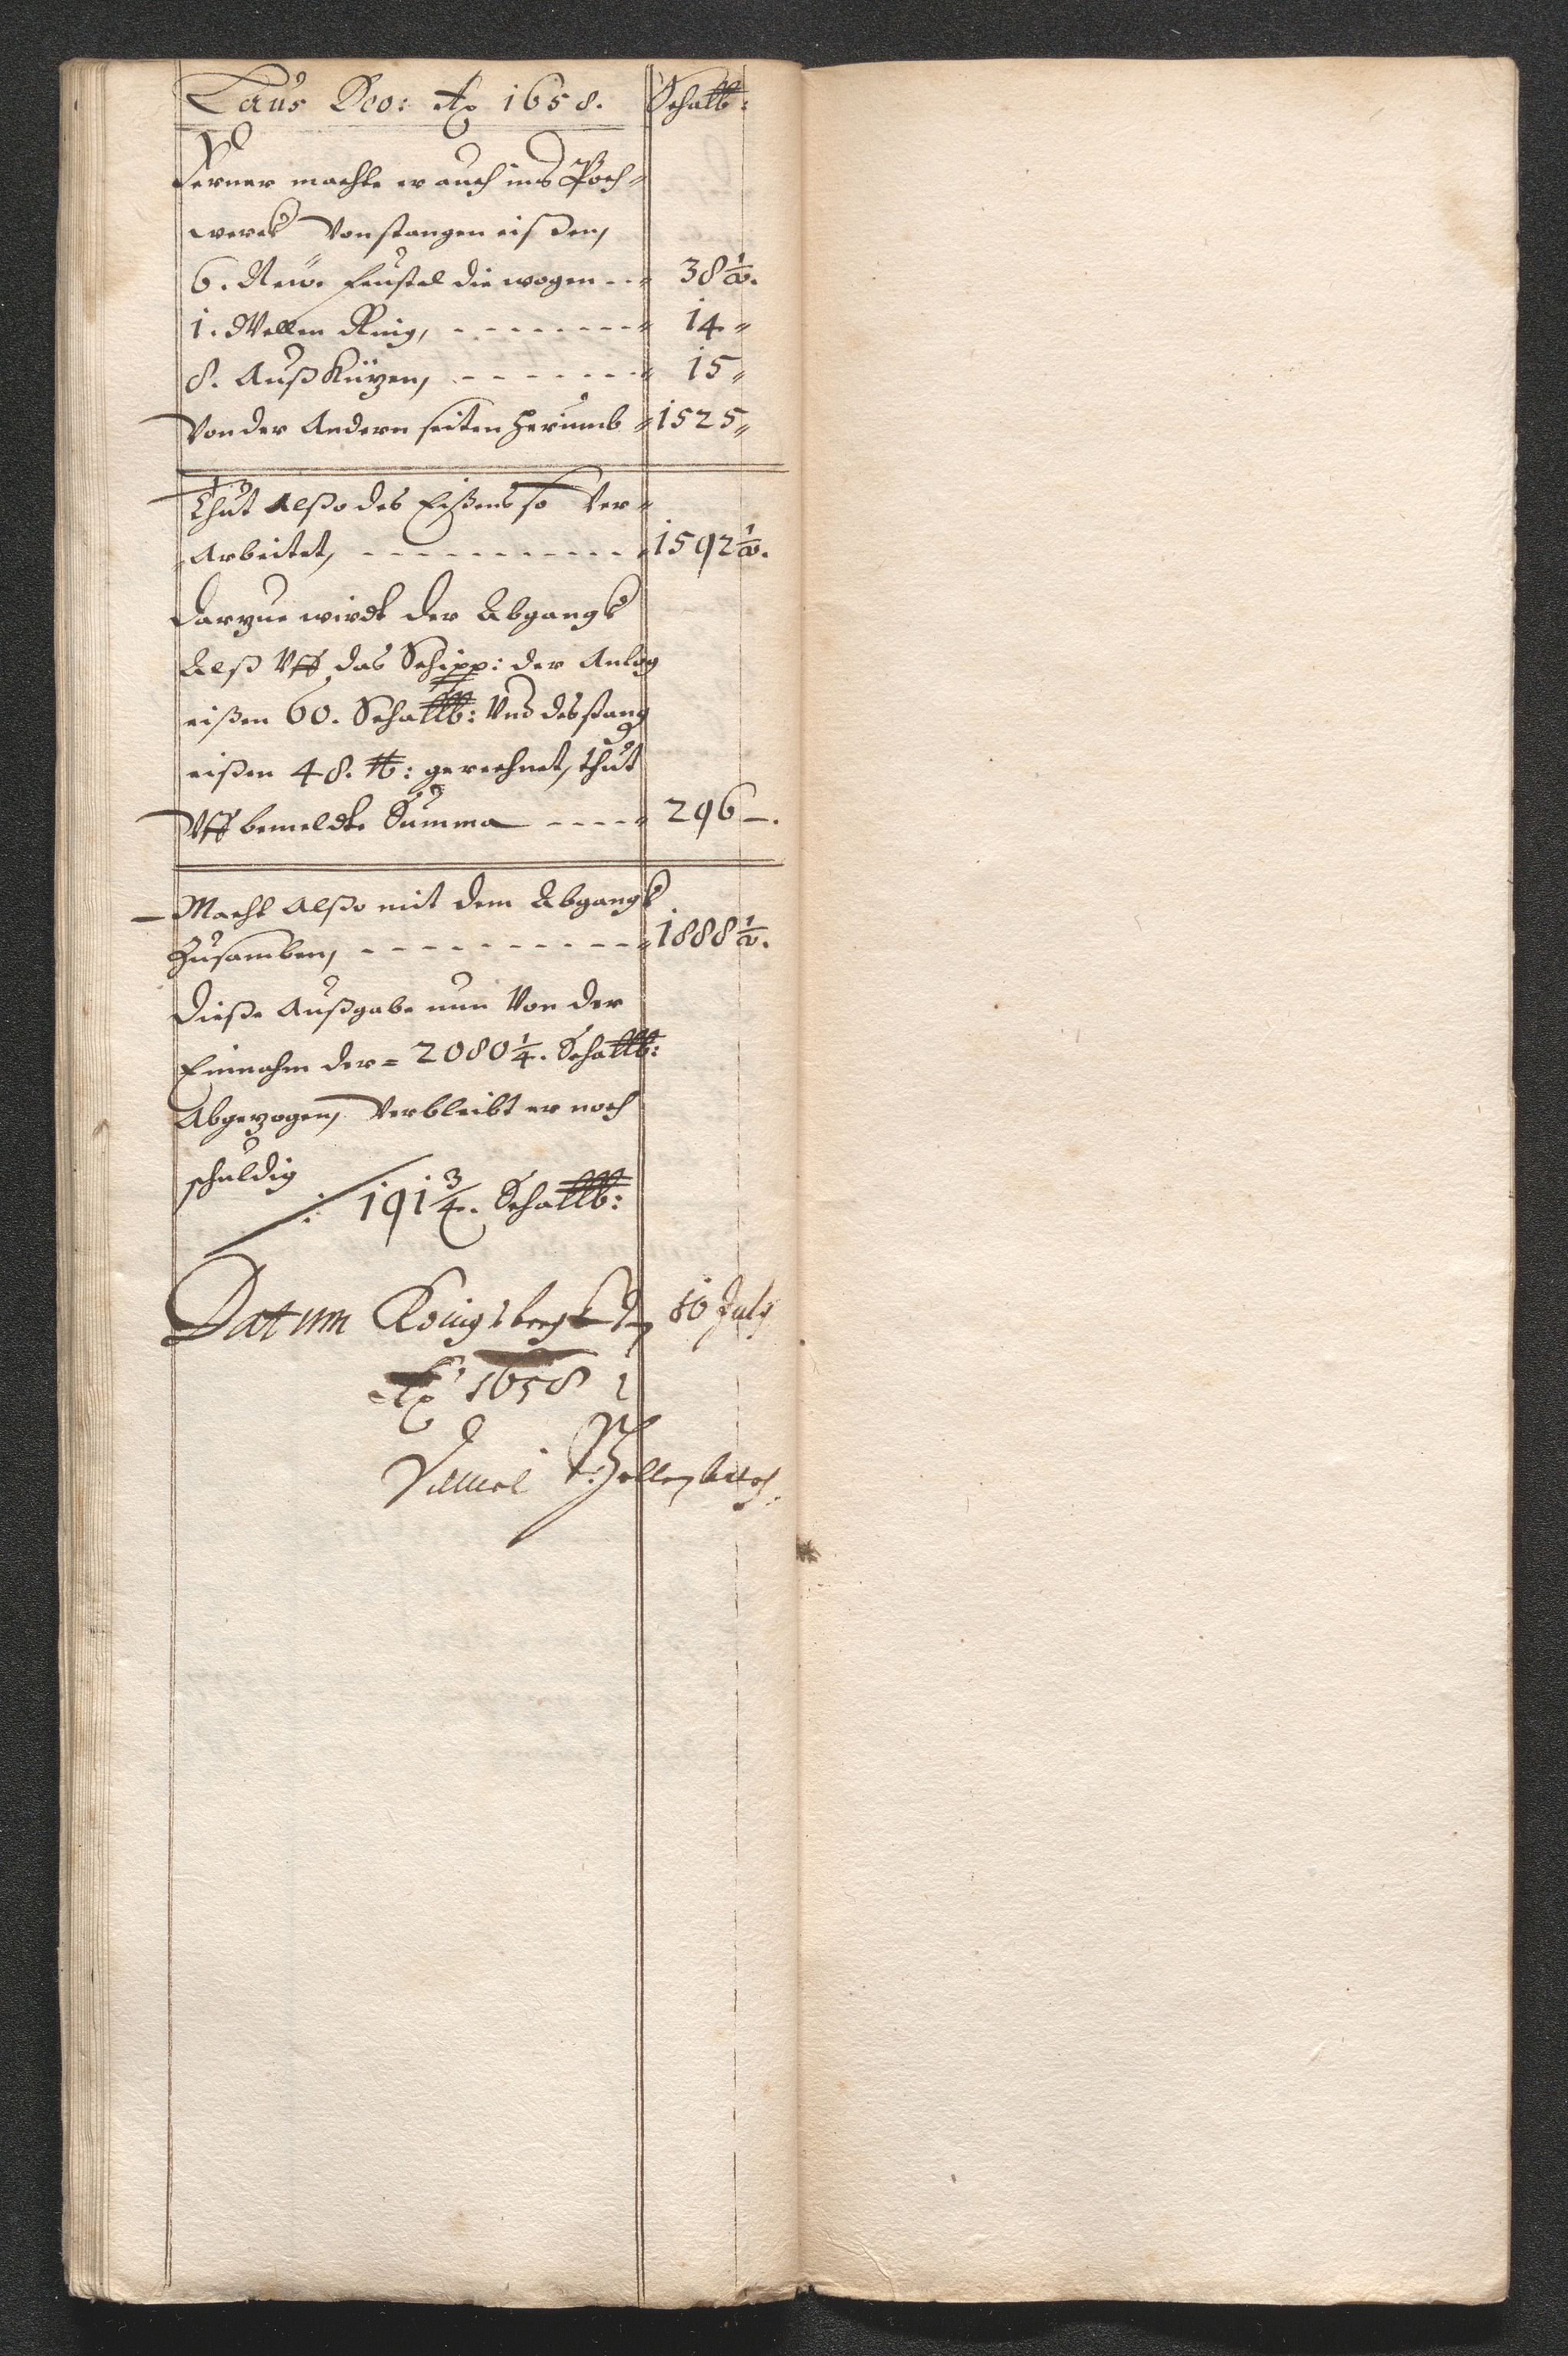 Laus Deo: Ao 1658. Schalb:
Ferner machte er auch ins Poch-
werck Von stangen eißen,
6. New. feustel die wogen - - 38 1/2.
1. Wellen Ring, - - - - - - - 14 "
8. Auß Küzen, - - - - - - 15 "
Von der Andern seiten herumb " 1525 "
Thut Alßo des Eißens so Ver-
Arbeitet, - - - - - - - - - - - 1592 1/2.
Darzue wirdt der Abgangk
Alß Vff das Schipp: der Anlog
eißen 60. Schalb: Und des stang
eißen 48. lb: gerechnet, thut
Vff bemeldte Summa - - - - 296 -.
Macht Alßo mit dem Abgangk
Zusamben, - - - - - - - - - - 1888 1/2.
Dieße Außgabe nun Von der
Einnahm der = 2080 1/4. Schalb:
Abgezogen, Verbleibt er noch
schuldig
/: 191 3/4. Schalb:
Datum Konigsbergk den 10 July
Ao 1658